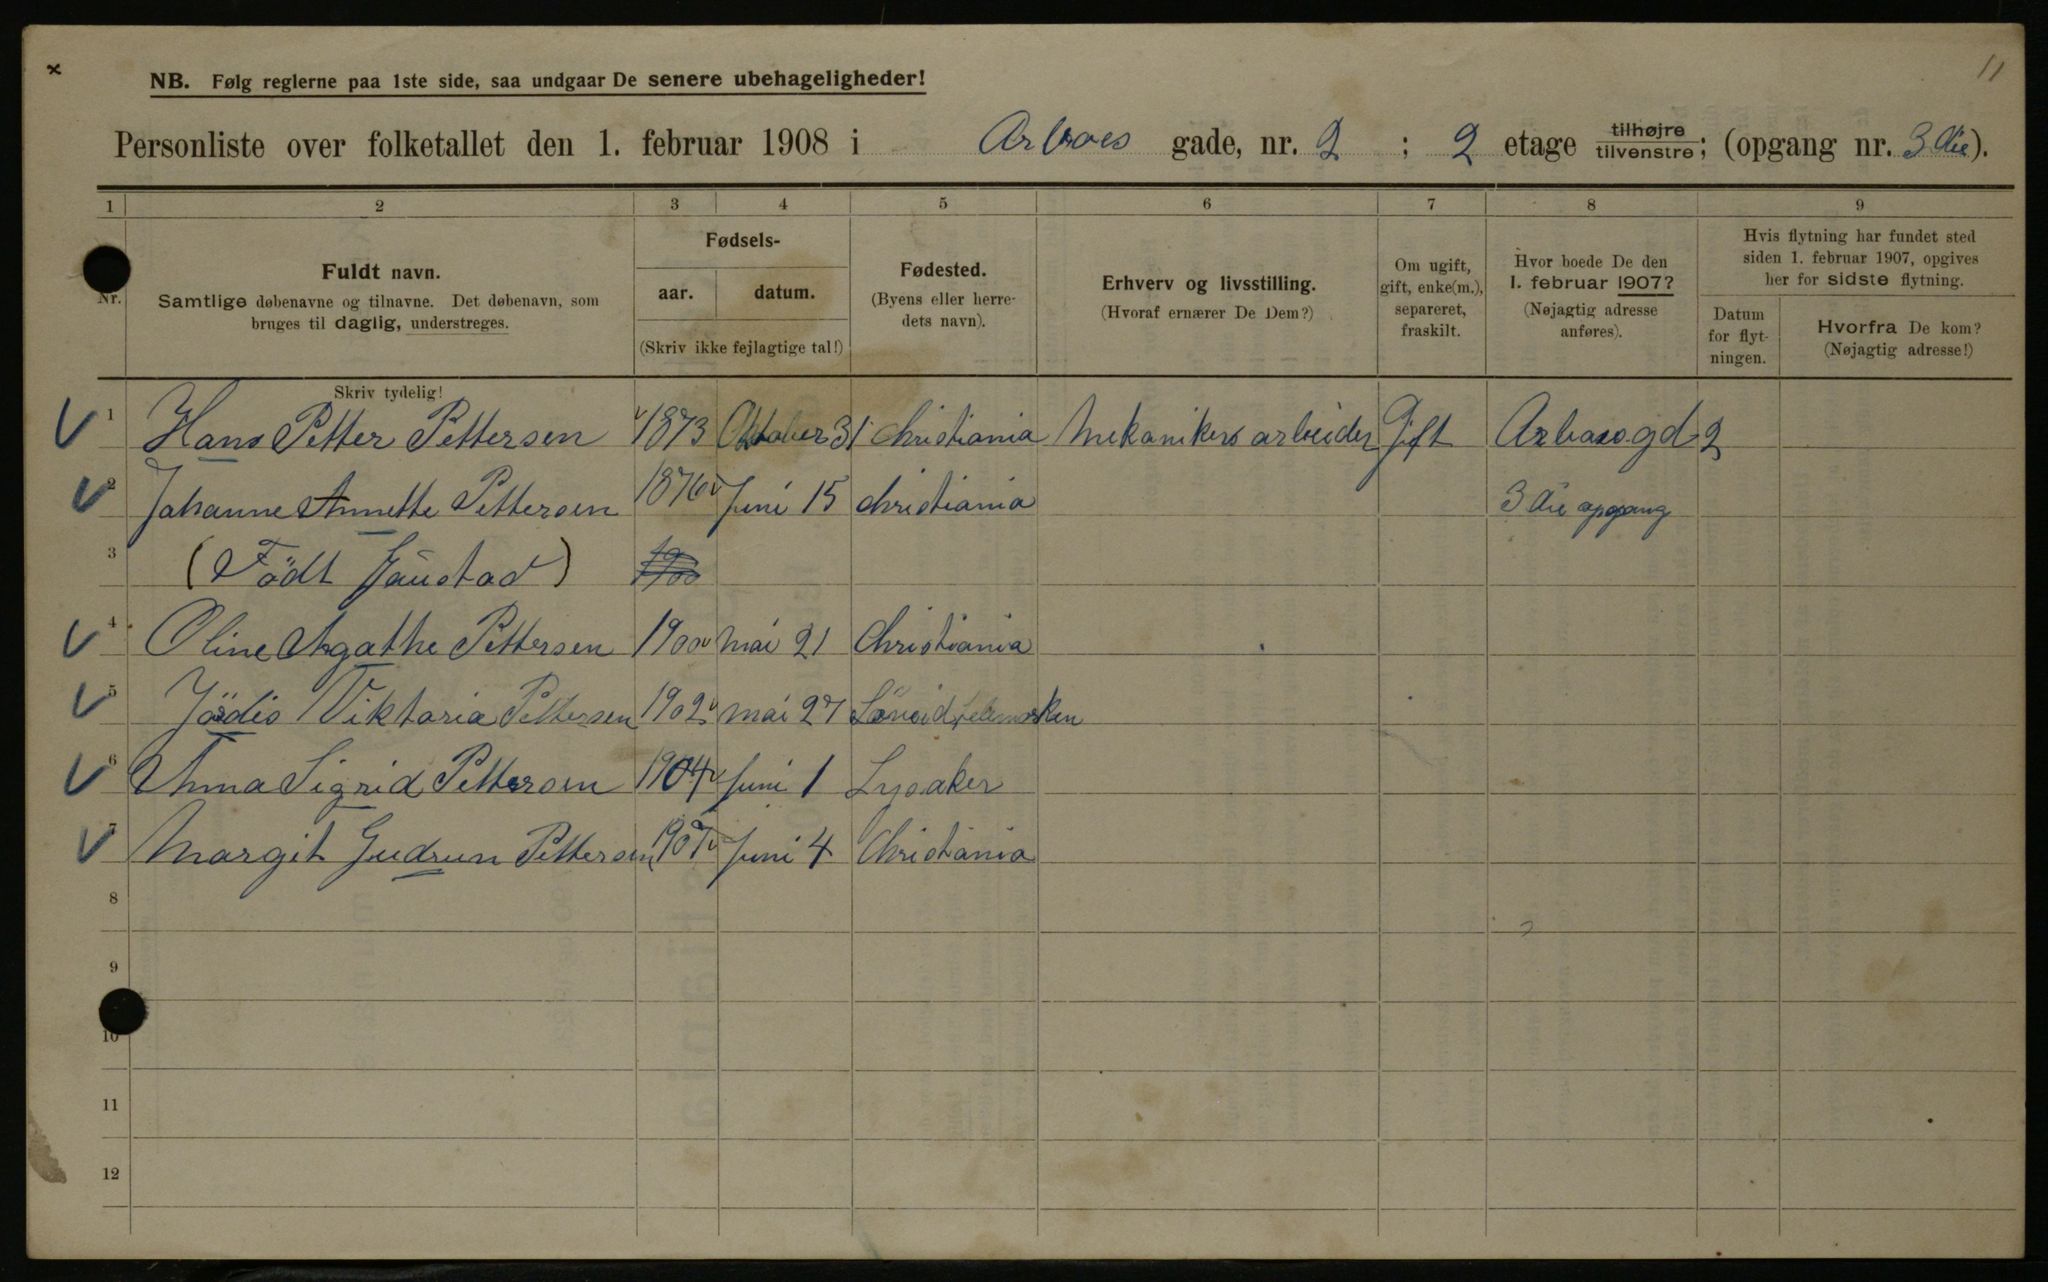 11
NB. Følg reglerne paa 1ste side, saa undgaar De senere ubehageligheder!
Personliste over folketallet den 1. februar 1908 i Arboes gade, nr. 2 ; 2 etage tilhøjre tilvenstre; (opgang nr. 3die).
1 2 3 4 5 6 7 8 9
Nr.
Fuldt navn.
Samtlige døbenavne og tilnavne. Det døbenavn, som
bruges til daglig, understreges.
Skriv tydelig!
Fødsels-
aar. datum.
(Skriv ikke fejlagtige tal!)
Fødested.
(Byens eller herre-
dets navn).
Erhverv og livsstilling.
(Hvoraf ernærer De Dem?)
Om ugift,
gift, enke(m.),
separeret,
fraskilt.
Hvor boede De den
1. februar 1907?
(Nøjagtig adresse
anføres).
Hvis flytning har fundet sted
siden 1. februar 1907, opgives
her for sidste flytning.
Datum
for flyt-
ningen.
Hvorfra De kom?
(Nøjagtig adresse!)
1 Hans Petter Pettersen 1873 Oktober 31 Christiania Mekanikers arbeider Gift Arboesgd 2
2 Johanne Annette Pettersen 1876 Juni 15 Christiania 3die opgang
3 (Født Gaustad) 1900
4 Oline Agathe Pettersen 1900 Mai 21 Christiania
5 Jördis Viktoria Pettersen 1902 Mai 27 Løveid, telemarken
6 Anna Sigrid Pettersen 1904 Juni 1 Lysaker
7 Margit Gudrun Pettersen 1907 Juni 4 Christiania
8
9
10
11
12